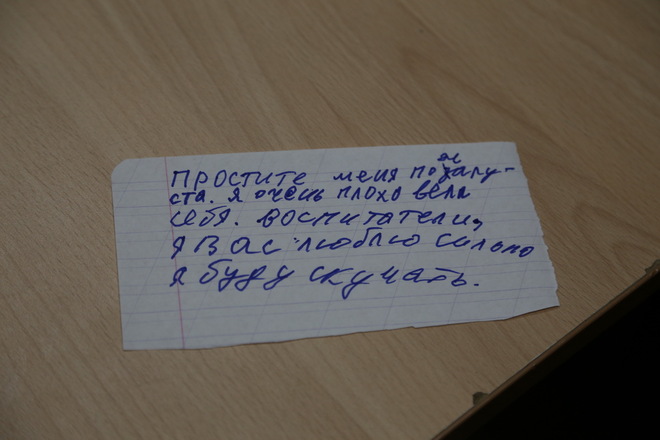 Простите меня пожалу-
ста. Я очень плохо вела
себя. Воспитатели,
я Вас люблю сильно
я буду скучать.